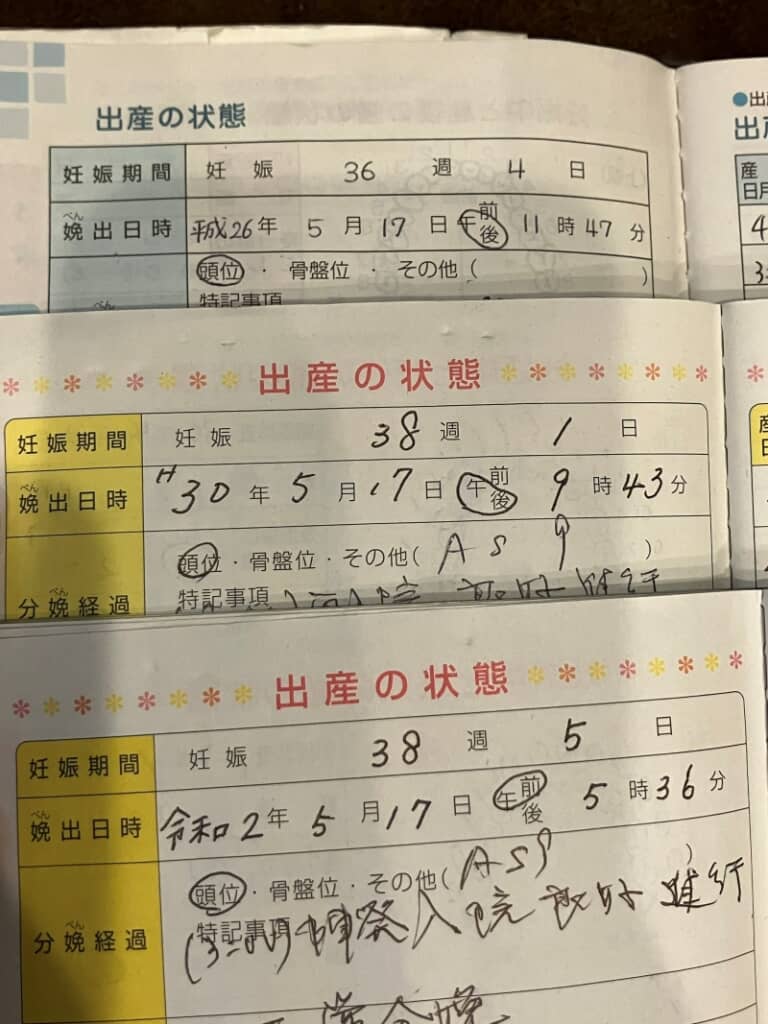 出産の状態
妊娠期間 妊娠 36 週 4 日
娩出日時 平成26年 5月17日 午前後 11時47分
頭位・骨盤位・その他( )
特記事項
●出産
出産
産
日月
出産の状態
妊娠期間 妊娠 38週 1日
娩出日時 H30年 5月17日 午前後 9時43分
分娩経過 頭位・骨盤位・その他( )
特記事項
出産の状態
妊娠期間 妊娠 38週 5日
娩出日時 令和2年 5月17日 午前後 5時36分
頭位・骨盤位・その他( )
分娩経過 特記事項